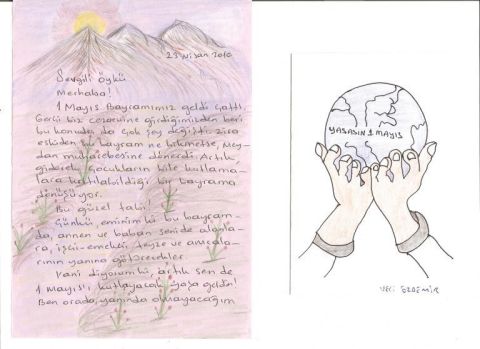 23 Nisan 2010
Sevgili öykü
Merhaba!
1 Mayıs Bayramımız geldi çattı.
Gerçi biz cezaevine girdiğimizden beri
bu konuda da çok şey değişti. Zira
eskiden bu bayram ne hikmetse, mey-
dan muharebesine dönerdi. Artık
giderek çocukların bile kutlama-
lara katılabildiği bir bayrama
dönüşüyor.
Bu güzel tabi!
Çünkü, eminim ki bu bayram-
da, annen ve baban seni de alanla-
ra, işçi-emekçi teyze ve amcala-
rının yanına götürecekler.
Yani diyorum ki, artık sen de
1 Mayıs'ı kutlayacak yaşa geldin!
Ben orada, yanında olmayacağım
YAŞASIN 1 MAYIS
VELİ ÖZDEMİR